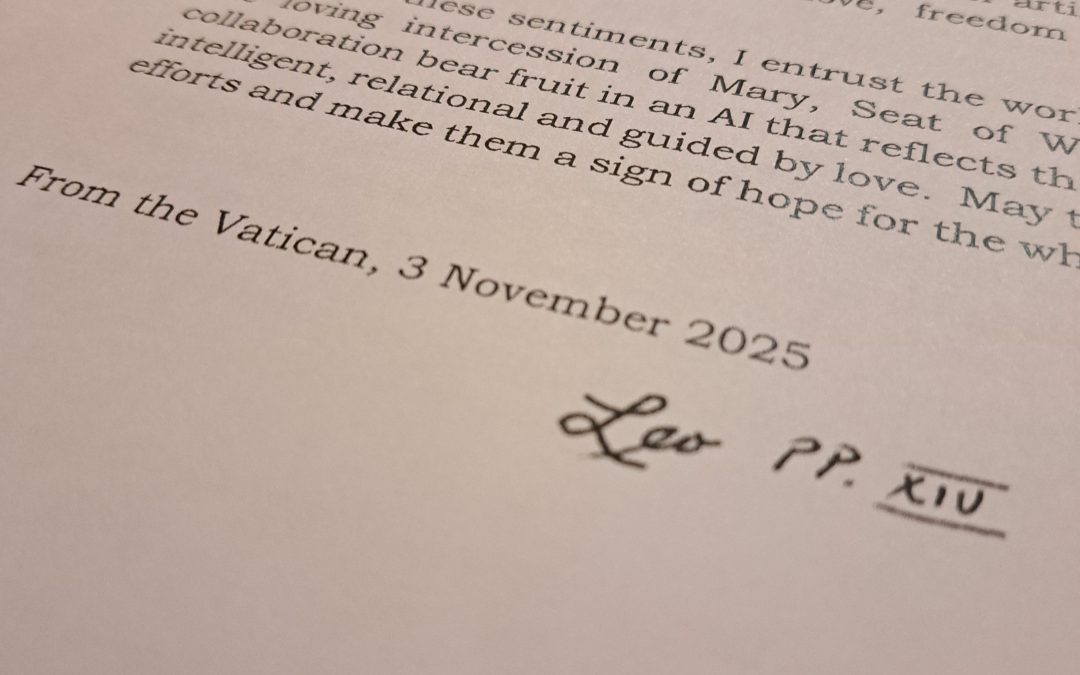 freedom
sentiments, I entrust the
loving intercession of Mary, Seat of
collaboration bear fruit in an AI that reflects
intelligent, relational and guided by love. May
efforts and make them a sign of hope for the
From the Vatican, 3 November 2025
Leo PP. XIV